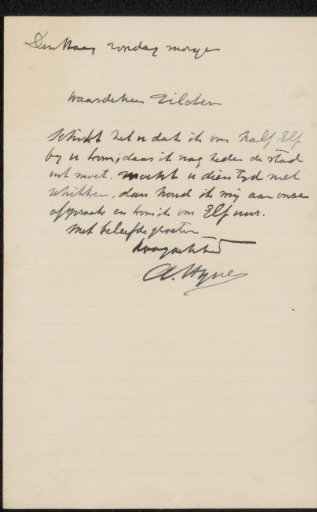 Den Haag zondag morgen
Waarde Heer Zilcken
Schikt het u dat ik om half Elf
by u kom, daar ik nog heden de stad
uit moet. mocht u dien tyd niet
schikken, dan houd ik my aan onze
afspraak en kom ik om Elf uur.
Met beleefde groeten
Hoogachtend
A.